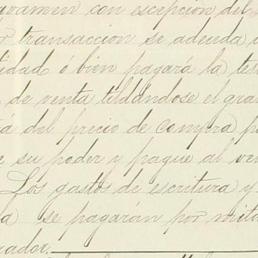 gravamen con escepcion del
transaccion se adeuda
lidad ó bien pagará la ter
de venta tildándose el gra
del precio de compra
su poder y pague al ven
Los gastos de escritura y
se pagarán por mita